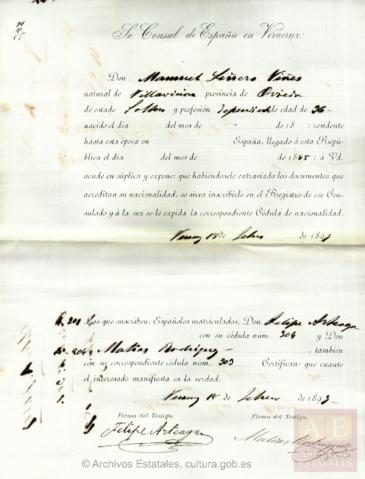 Sr. Consul de España en Veracruz:
Don Manuel Piñero Viñes
natural de Villaviciosa provincia de Oviedo
de estado Soltero y profesión dependiente de edad de 36
nacido el dia del mes de de 18 : residente
hasta esta época en España, llegado á esta Repú-
blica el dia del mes de de 1885: á Vd.
acude en súplica y expone: que habiéndosele extraviado los documentos que
acreditan su nacionalidad, se sirva inscribirle en el Registro de ese Con-
sulado y á la vez se le expida la correspondiente Cédula de nacionalidad.
Veracruz 18 de Febrero de 1897
Los que suscriben, Españoles matriculados, Don Felipe Arteaga
con su cédula núm. 304 y Don
Matias Rodriguez también
con su correspondiente cédula núm. 303 Certifican: que cuanto
el interesado manifiesta es la verdad.
Veracruz 18 de Febrero de 1897
Firma del Testigo. Firma del Testigo.
Felipe Arteaga Matias Rodriguez
AE
ARCHIVOS
ESTATALES
© Archivos Estatales, cultura.gob.es